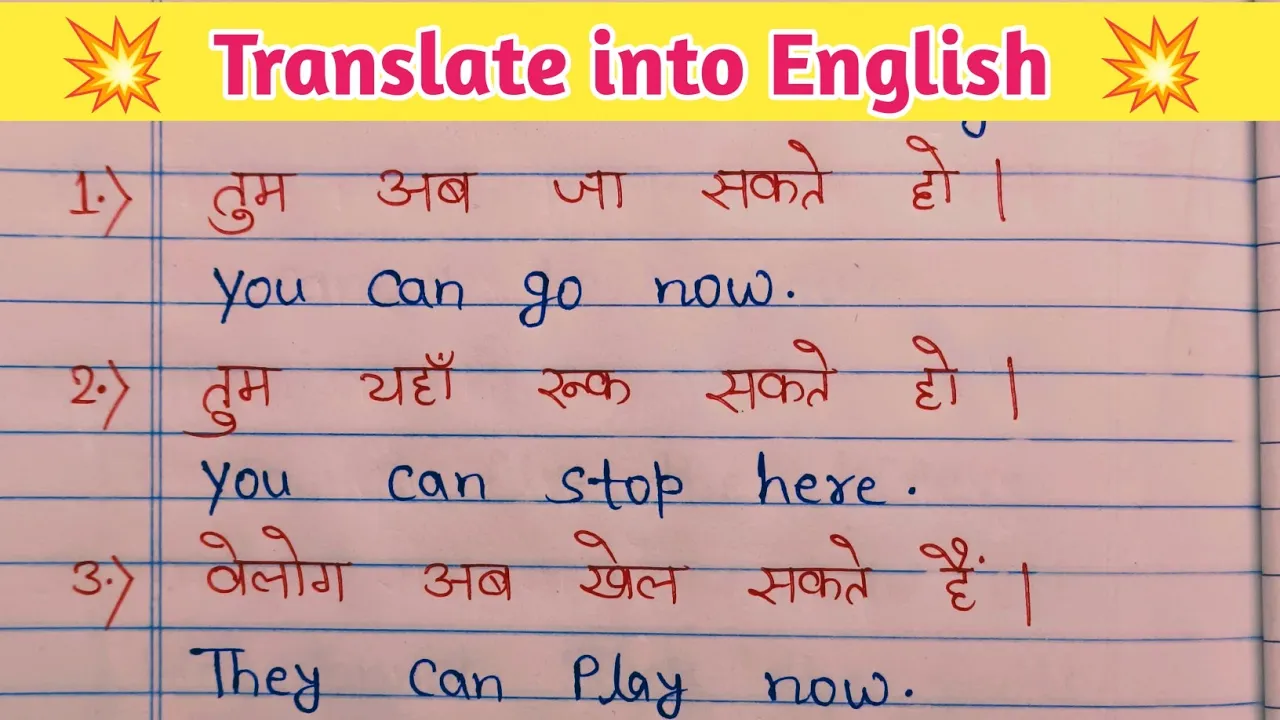 Translate into English
1.) तुम अब जा सकते हो |
You can go now.
2.) तुम यहाँ रूक सकते हो |
You can stop here.
3.) वेलोग अब खेल सकते हैं |
They can Play now.